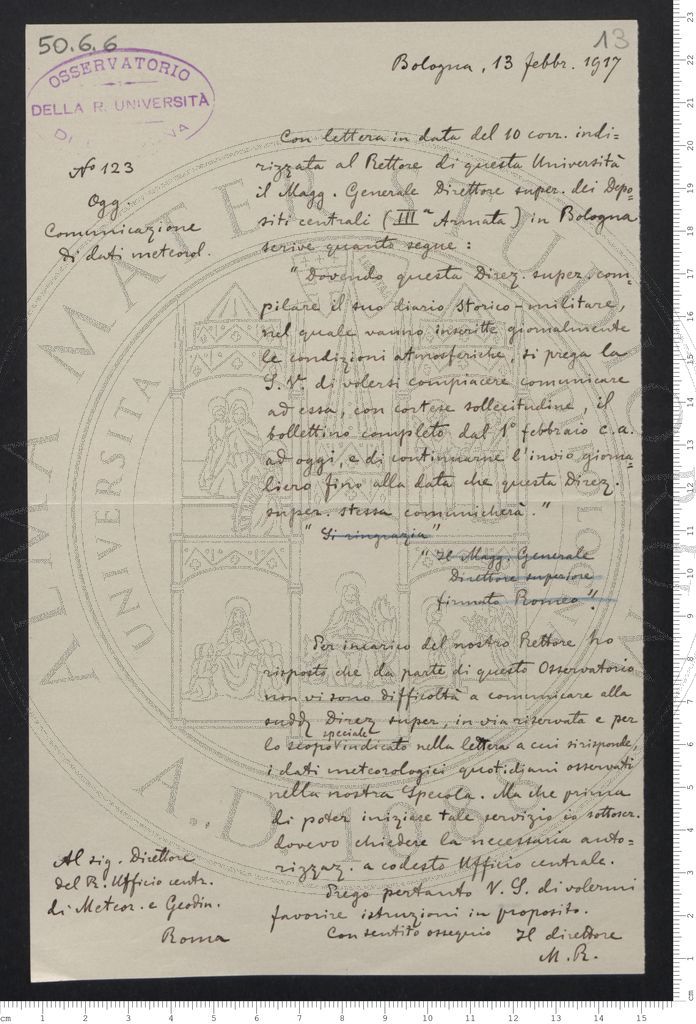 50.6.6
13
OSSERVATORIO
DELLA R. UNIVERSITÀ
Bologna, 13 febbr. 1917
Nº 123
Ogg.
Comunicazione
di dati meteorol.
Con lettera in data del 10 corr. indi=
rizzata al Rettore di questa Università
il Magg. Generale Direttore super. dei Depo=
siti centrali (IIIª Armata) in Bologna
scrive quanto segue:
"Dovendo questa Direz. super. com=
pilare il suo diario storico-militare,
nel quale vanno inscritte giornalmente
le condizioni atmosferiche, si prega la
S. V. di volersi compiacere comunicare
ad essa, con cortese sollecitudine, il
bollettino completo dal 1º febbraio c.a.
ad oggi, e di continuarne l'invio giorna=
liero fino alla data che questa Direz.
super. stessa comunicherà."
"Si ringrazia"
"Il Magg. Generale
Direttore superiore
firmato Romeo".
Per incarico del nostro Rettore ho
risposto che da parte di questo Osservatorio
non vi sono difficoltà a comunicare alla
sudd. Direz. super., in via riservata e per
lo scopo speciale indicato nella lettera a cui si risponde,
i dati meteorologici quotidiani osservati
nella nostra Specola. Ma che prima
di poter iniziare tale servizio io sottoscr.
dovevo chiedere la necessaria auto=
rizzaz. a codesto Ufficio centrale.
Prego pertanto V. S. di volermi
favorire istruzioni in proposito.
Con sentito ossequio Il direttore
M. R.
Al sig. Direttore
del R. Ufficio centr.
di Meteor. e Geodin.
Roma
ALMA MATER STUDIORUM
UNIVERSITÀ
A.D. 1088